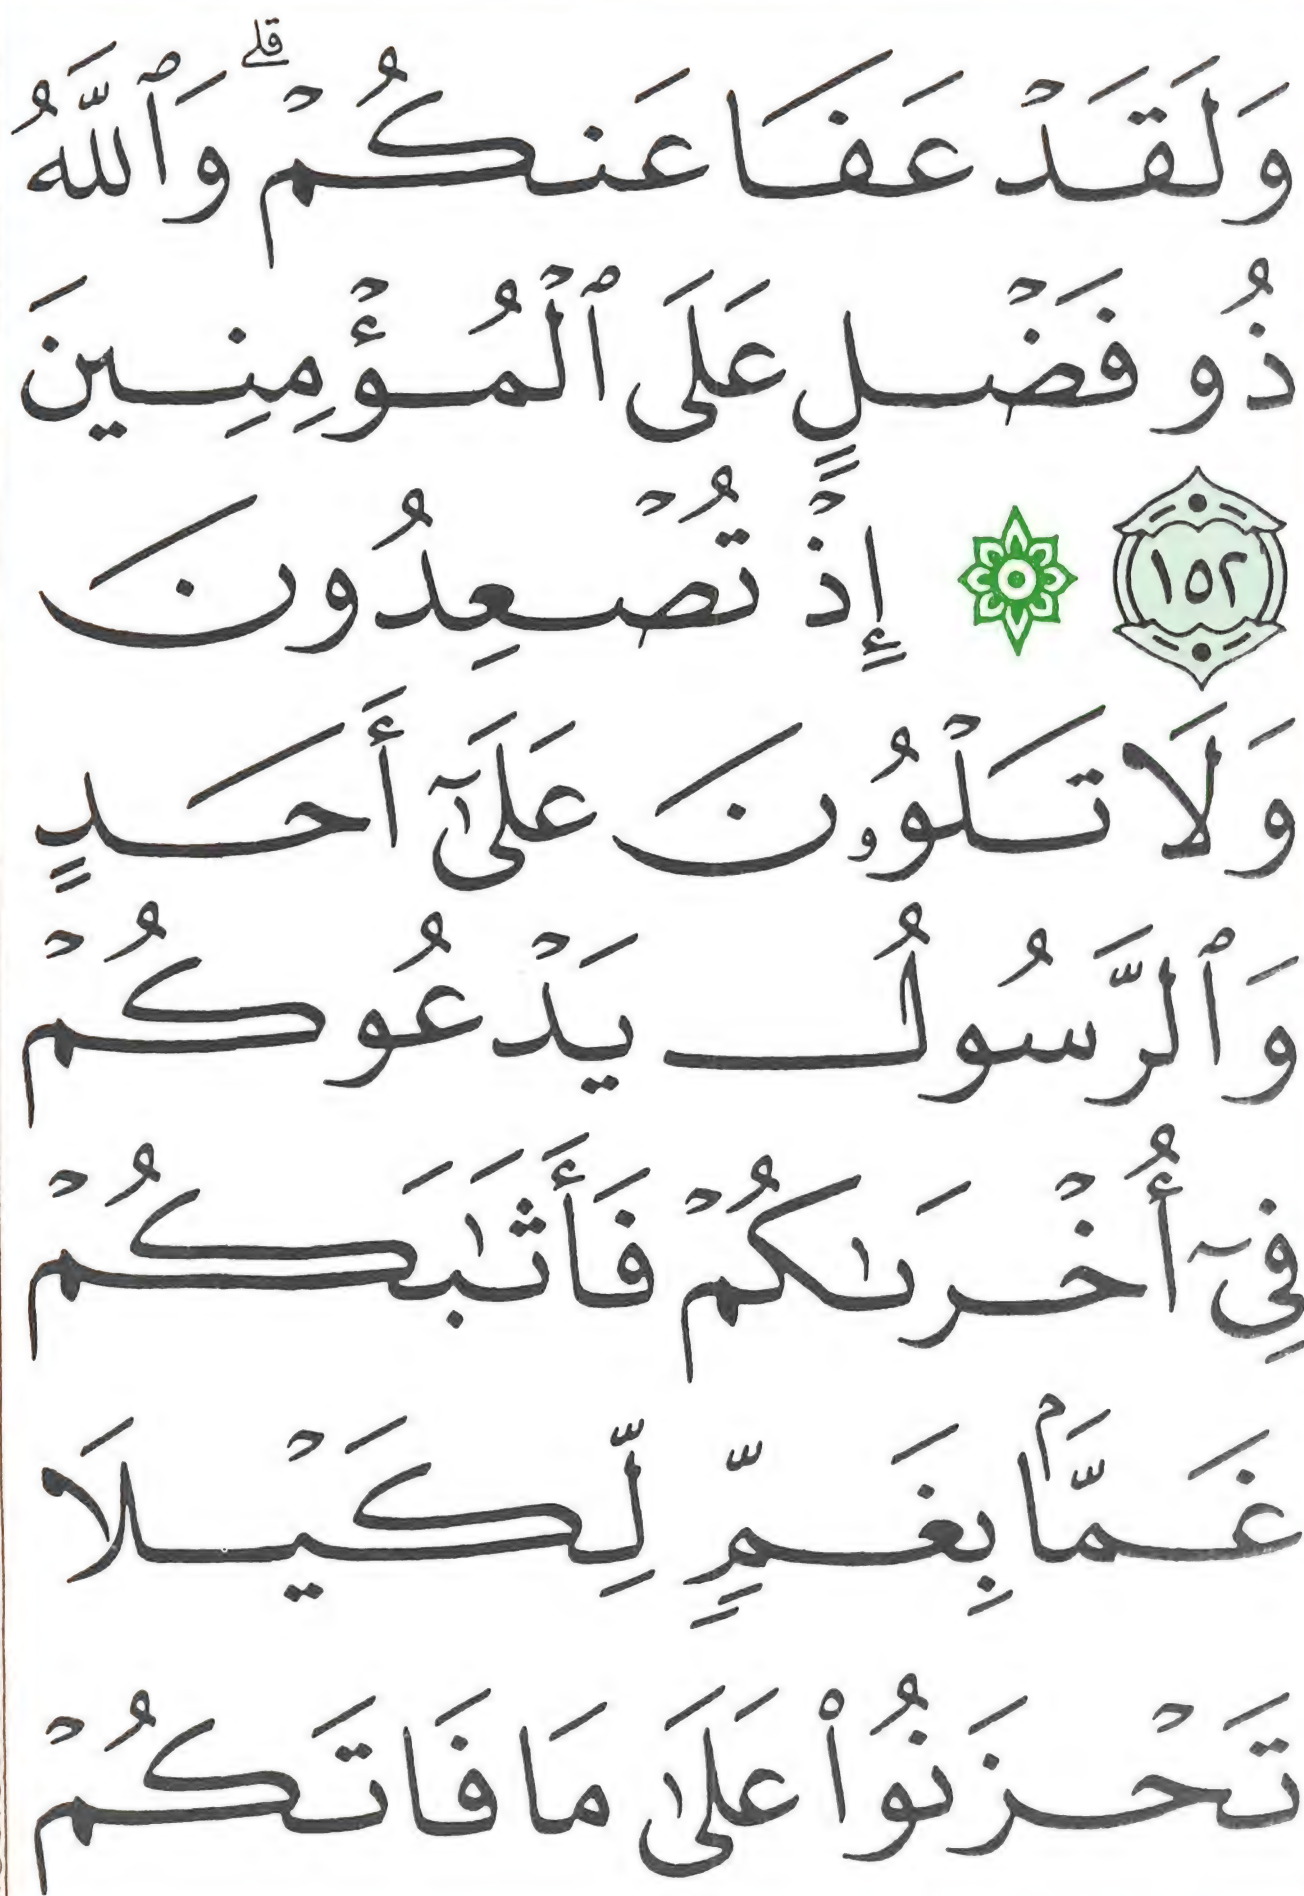 وَلَقَدْ عَفَا عَنكُمْ ۗ وَٱللَّهُ
ذُو فَضْلٍ عَلَى ٱلْمُؤْمِنِينَ
١٥٢ ۞ إِذْ تُصْعِدُونَ
وَلَا تَلْوُۥنَ عَلَىٰٓ أَحَدٍ
وَٱلرَّسُولُ يَدْعُوكُمْ
فِىٓ أُخْرَىٰكُمْ فَأَثَٰبَكُمْ
غَمًّۢا بِغَمٍّ لِّكَيْلَا
تَحْزَنُوا۟ عَلَىٰ مَا فَاتَكُمْ